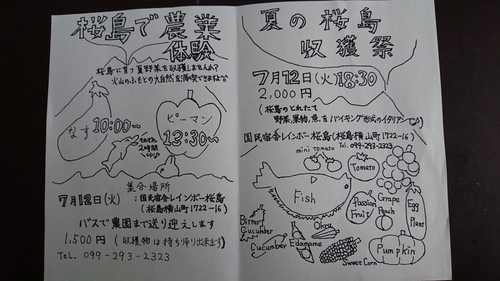 桜島で農業
体験
桜島に育つ夏野菜を収穫しませんか?
火山のふもとの大自然を満喫できますよ
なす
10:00~
ピーマン
13:30~
それぞれ
2時間
くらい
集合場所
7月12日(火)
:国民宿舎レインボー桜島
(桜島横山町1722-16)
バスで農園まで送り迎えします
1,500円(収穫物は持ち帰り出来ます)
TEL. 099-293-2323
夏の桜島
収獲祭
7月12日(火)18:30
2,000円
(桜島のとれたて
野菜、果物、魚をバイキング形式のイタリアンで)
国民宿舎レインボー桜島(桜島横山町1722-16)
Tel. 099-293-2323
mini tomato
Tomato
Fish
Passion
Fruit
Grape
Peach
Egg
Plant
Bitter
Cucumber
Cucumber
Edamame
Okra
Sweet Corn
Pumpkin